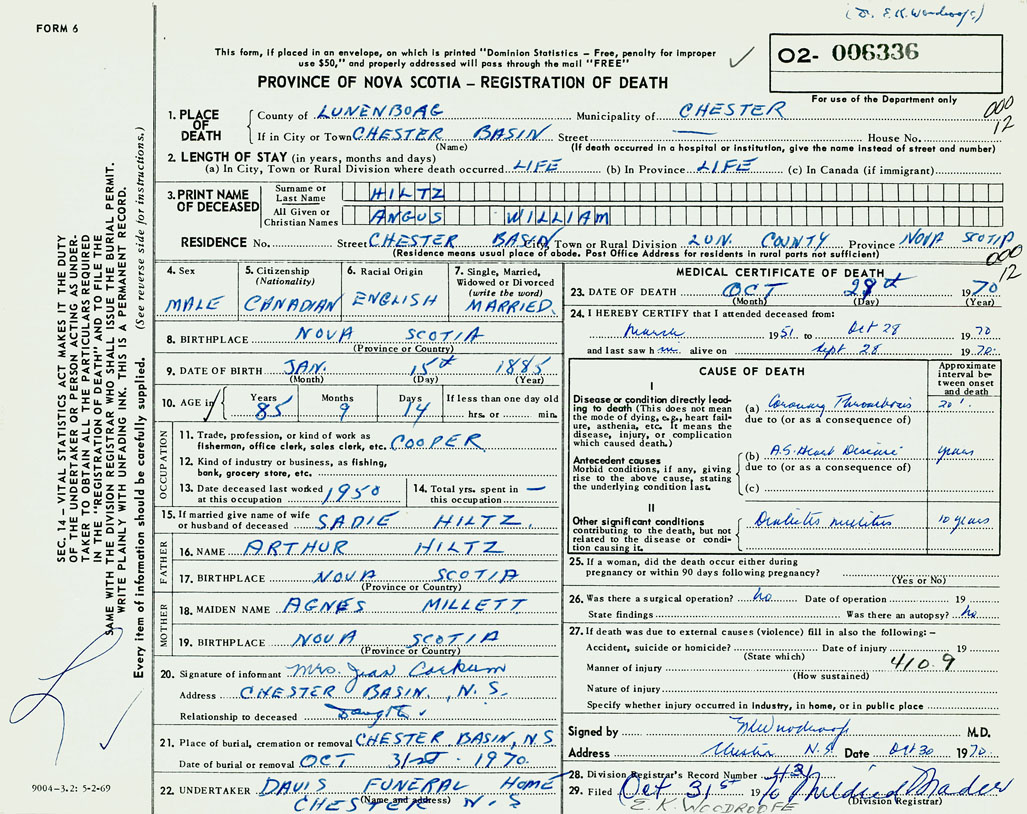 (Dr. E.K. Woodroofe)
FORM 6
This form, if placed in an envelope, on which is printed "Dominion Statistics – Free, penalty for improper
use $50," and properly addressed will pass through the mail "FREE"
PROVINCE OF NOVA SCOTIA – REGISTRATION OF DEATH
02- 006336
For use of the Department only
000
12
SEC. 14 – VITAL STATISTICS ACT MAKES IT THE DUTY
OF THE UNDERTAKER OR PERSON ACTING AS UNDER-
TAKER TO OBTAIN ALL THE PARTICULARS REQUIRED
IN THE "REGISTRATION OF DEATH" AND TO FILE THE
SAME WITH THE DIVISION REGISTRAR WHO SHALL ISSUE THE BURIAL PERMIT.
WRITE PLAINLY WITH UNFADING INK. THIS IS A PERMANENT RECORD.
Every item of information should be carefully supplied. (See reverse side for instructions.)
9004-3.2: 5-2-69
1. PLACE OF DEATH
County of LUNENBOAG Municipality of CHESTER
If in City or Town CHESTER BASIN Street — House No.
(Name) (If death occurred in a hospital or institution, give the name instead of street and number)
2. LENGTH OF STAY (in years, months and days)
(a) In City, Town or Rural Division where death occurred LIFE (b) In Province LIFE (c) In Canada (if immigrant)
3. PRINT NAME OF DECEASED
Surname or Last Name HILTZ
All Given or Christian Names ANGUS WILLIAM
RESIDENCE No. Street CHESTER BASIN City, Town or Rural Division LUN. COUNTY Province NOVA SCOTIA
(Residence means usual place of abode. Post Office Address for residents in rural parts not sufficient)
000
12
4. Sex MALE
5. Citizenship (Nationality) CANADIAN
6. Racial Origin ENGLISH
7. Single, Married, Widowed or Divorced (write the word) MARRIED.
8. BIRTHPLACE NOVA SCOTIA
(Province or Country)
9. DATE OF BIRTH JAN. 15th 1885
(Month) (Day) (Year)
10. AGE in Years 85 Months 9 Days 14 If less than one day old hrs. or min.
OCCUPATION
11. Trade, profession, or kind of work as
fisherman, office clerk, sales clerk, etc. COOPER
12. Kind of industry or business, as fishing,
bank, grocery store, etc.
13. Date deceased last worked at this occupation 1950
14. Total yrs. spent in this occupation —
15. If married give name of wife
or husband of deceased SADIE HILTZ.
FATHER
16. NAME ARTHUR HILTZ
17. BIRTHPLACE NOVA SCOTIA
(Province or Country)
MOTHER
18. MAIDEN NAME AGNES MILLETT
19. BIRTHPLACE NOVA SCOTIA
(Province or Country)
20. Signature of informant Mrs. Jean Corkum
Address CHESTER BASIN, N.S.
Relationship to deceased Daughter
21. Place of burial, cremation or removal CHESTER BASIN, N.S
Date of burial or removal OCT 31st 1970.
22. UNDERTAKER DAVIS FUNERAL HOME
(Name and address) CHESTER N.S
MEDICAL CERTIFICATE OF DEATH
23. DATE OF DEATH OCT 28th 1970
(Month) (Day) (Year)
24. I HEREBY CERTIFY that I attended deceased from:
March 1951 to Oct 28 1970
and last saw him alive on Sept 28 1970.
CAUSE OF DEATH
Approximate interval between onset and death
I
Disease or condition directly leading to death (This does not mean the mode of dying, e.g., heart failure, asthenia, etc. It means the disease, injury, or complication which caused death.)
(a) Coronary Thrombosis 20'.
due to (or as a consequence of)
Antecedent causes
Morbid conditions, if any, giving rise to the above cause, stating the underlying condition last.
(b) A.S. Heart Disease years
due to (or as a consequence of)
(c)
II
Other significant conditions
contributing to the death, but not related to the disease or condition causing it.
Diabetis mellitus 10 years
25. If a woman, did the death occur either during
pregnancy or within 90 days following pregnancy?
(Yes or No)
26. Was there a surgical operation? No Date of operation 19
State findings Was there an autopsy? No
27. If death was due to external causes (violence) fill in also the following: –
Accident, suicide or homicide? Date of injury 19
(State which)
Manner of injury 410.9
(How sustained)
Nature of injury
Specify whether injury occurred in Industry, in home, or in public place
Signed by EKWoodroofe M.D.
Address Chester N.S. Date Oct 30 1970.
28. Division Registrar's Record Number 43
29. Filed Oct 31st 1970 Mildred Nader
(Division Registrar)
E.K. WOODROOFE